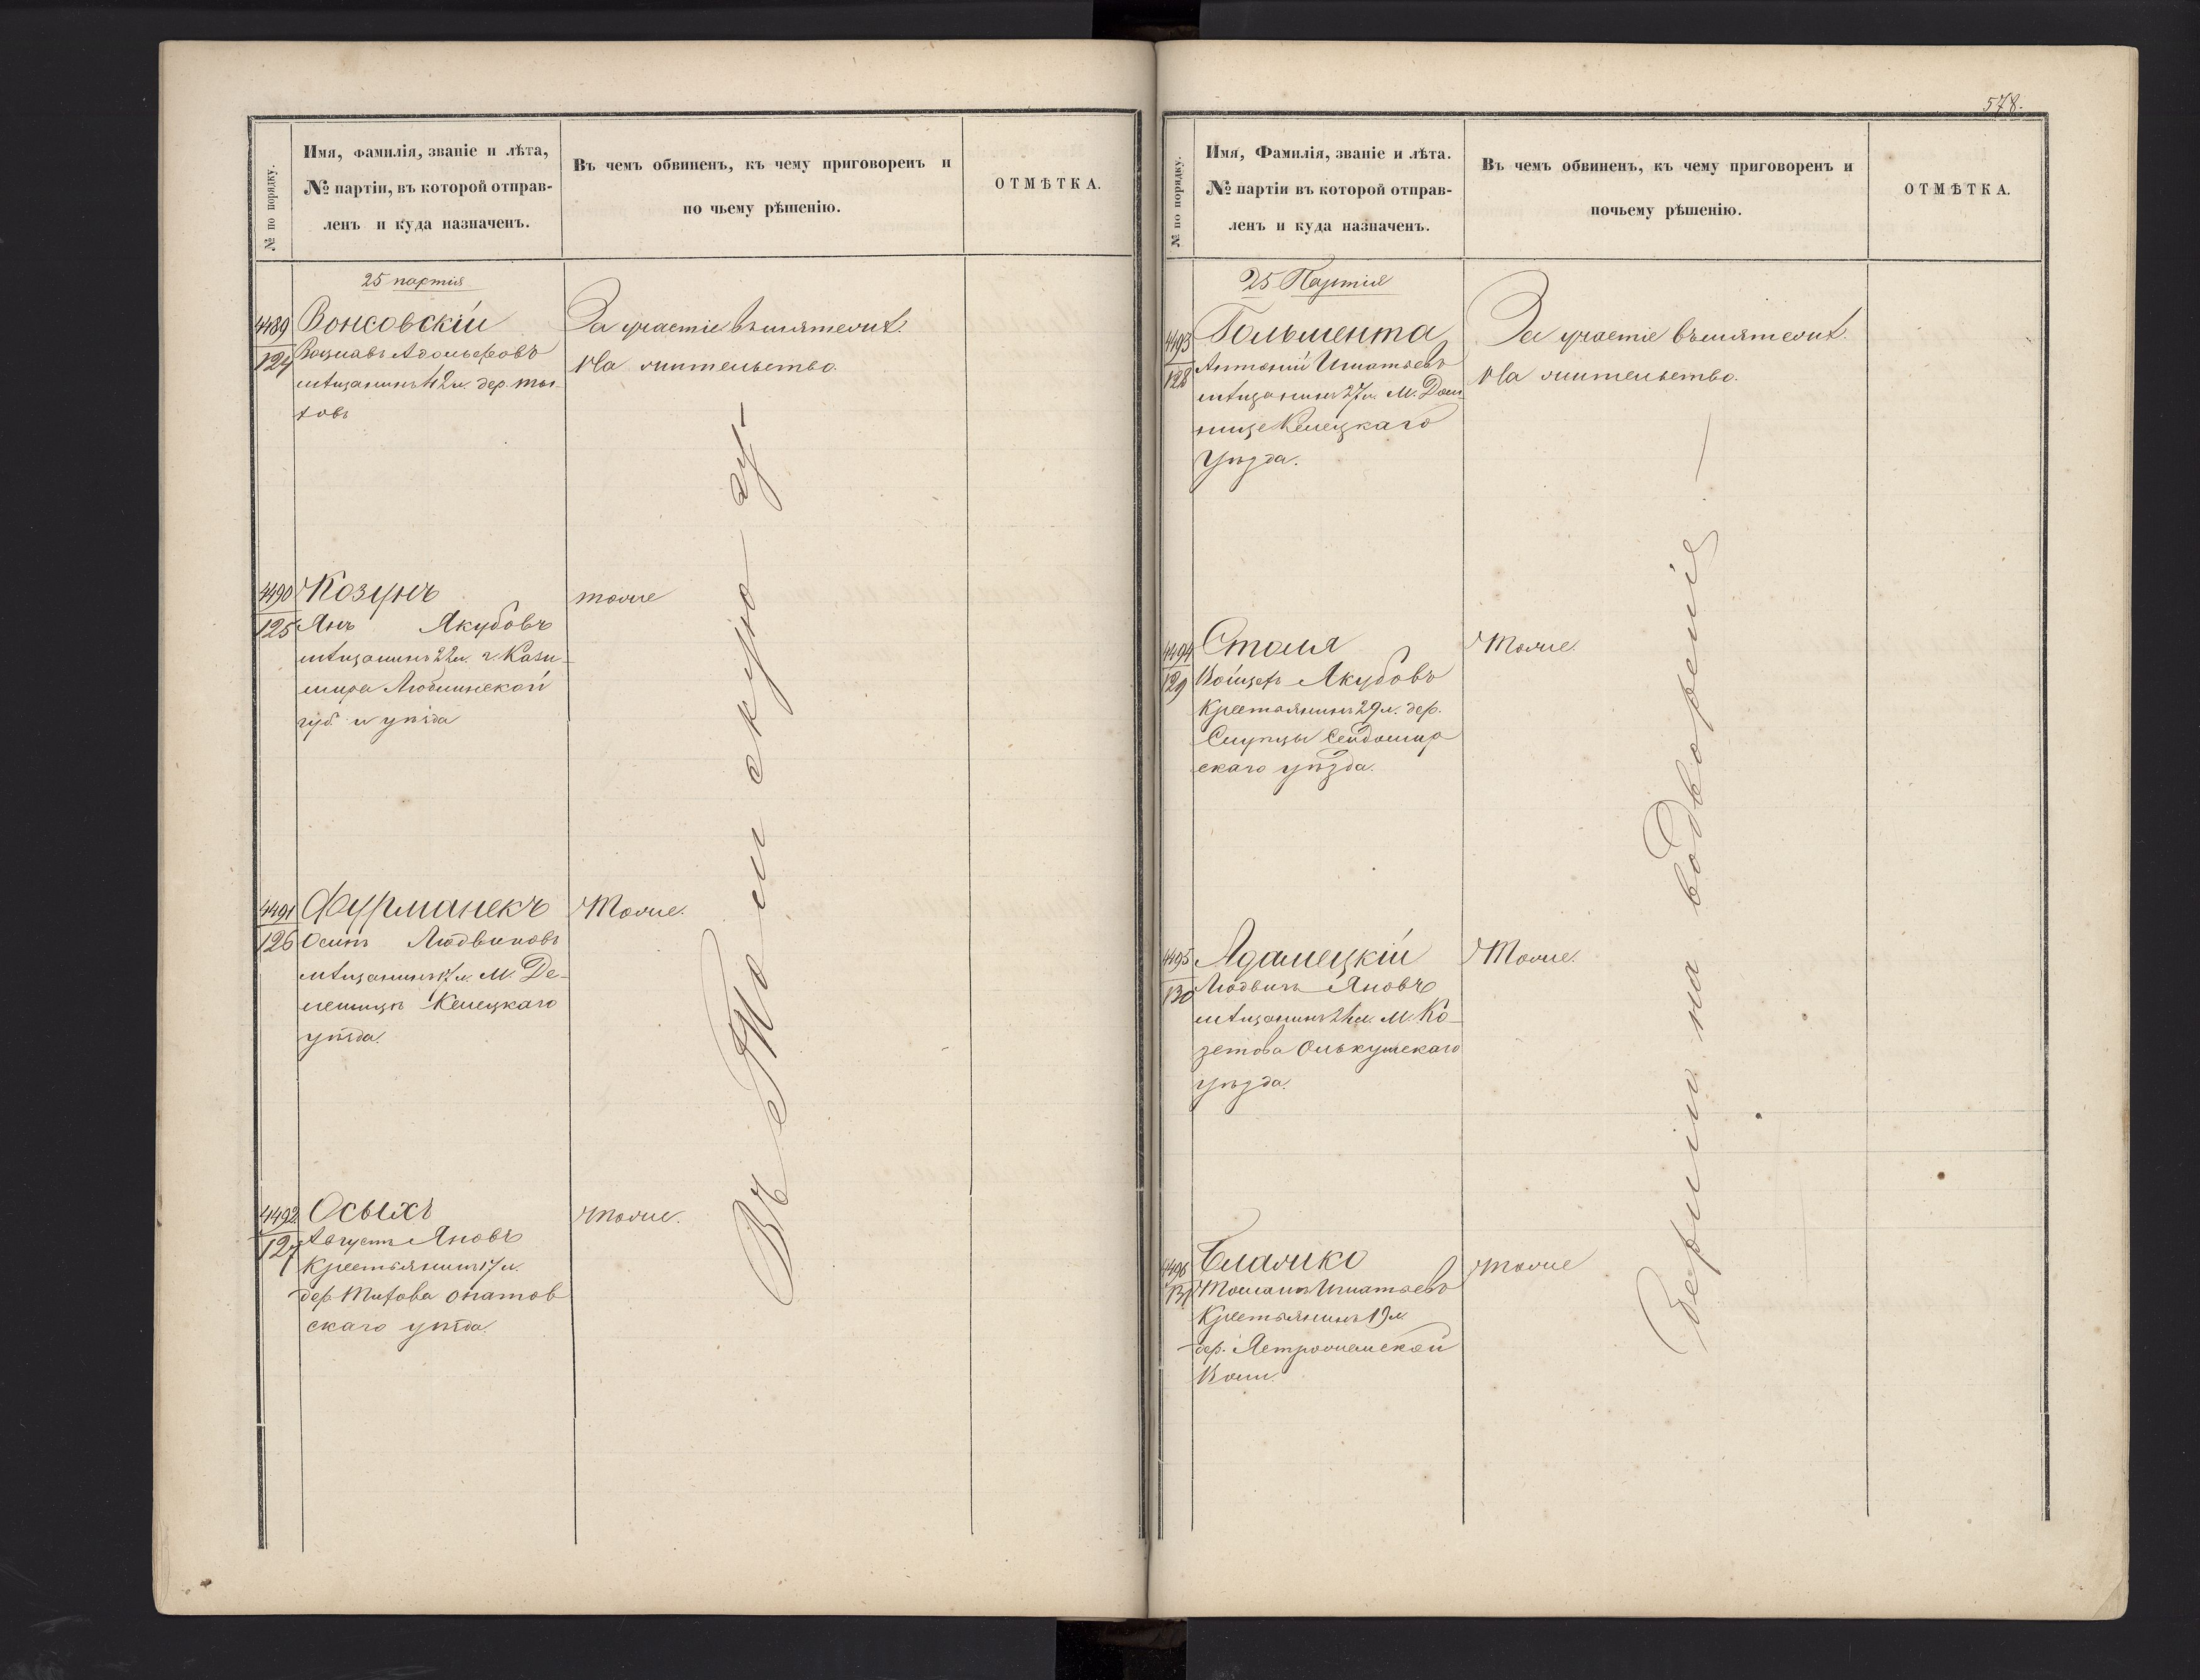 № по порядку.
Имя, Фамилія, званіе и лѣта,
№ партіи, въ которой отправ-
ленъ и куда назначенъ.
Въ чемъ обвиненъ, къ чему приговоренъ и
по чьему рѣшенію.
ОТМѢТКА.
25 партія
4489
124
Вонсовскій
Вацлавъ Адольфовъ
мѣщанинъ 42 л. дер.
За участіе въ мятежѣ.
На жительство.
4490
125
Козунъ
Янъ Якубовъ
мѣщанинъ 22 л. г. Кази-
мира Люблинской
губ и уѣзда
тоже
4491
126
Фурманекъ
Осипъ Людвиковъ
мѣщанинъ 17 л. М. Де-
Келецкаго
уѣзда.
Тоже.
4492
127
Осыхъ
Августъ Яновъ
Крестьянинъ 17 л.
дер. опатов
скаго уѣзда.
тоже.
Въ Томскую гу-
578.
№ по порядку.
Имя, Фамилія, званіе и лѣта.
№ партіи въ которой отправ-
ленъ и куда назначенъ.
Въ чемъ обвиненъ, къ чему приговоренъ и
почьему рѣшенію.
ОТМѢТКА.
25 Партія
4493
128
Гольмента
Антоній Игнатьевъ
мѣщанинъ 27 л. М.
Келецкаго
Уѣзда.
За участіе въ мятежѣ.
На жительство.
4494
129
Сталя
Войцех Якубовъ
Крестьянинъ 29 л. дер.
Слупцы Сендомир
скаго уѣзда.
Тоже.
4495
130
Адамецкій
Людвигъ Яновъ
мѣщанинъ 21 л. М. Ко-
зетова Олькушскаго
уѣзда.
Тоже.
4496
131
Блажико
Томашъ Игнатьевъ
Крестьянинъ 19 л.
дер.
тоже
бернію на водвореніе. —